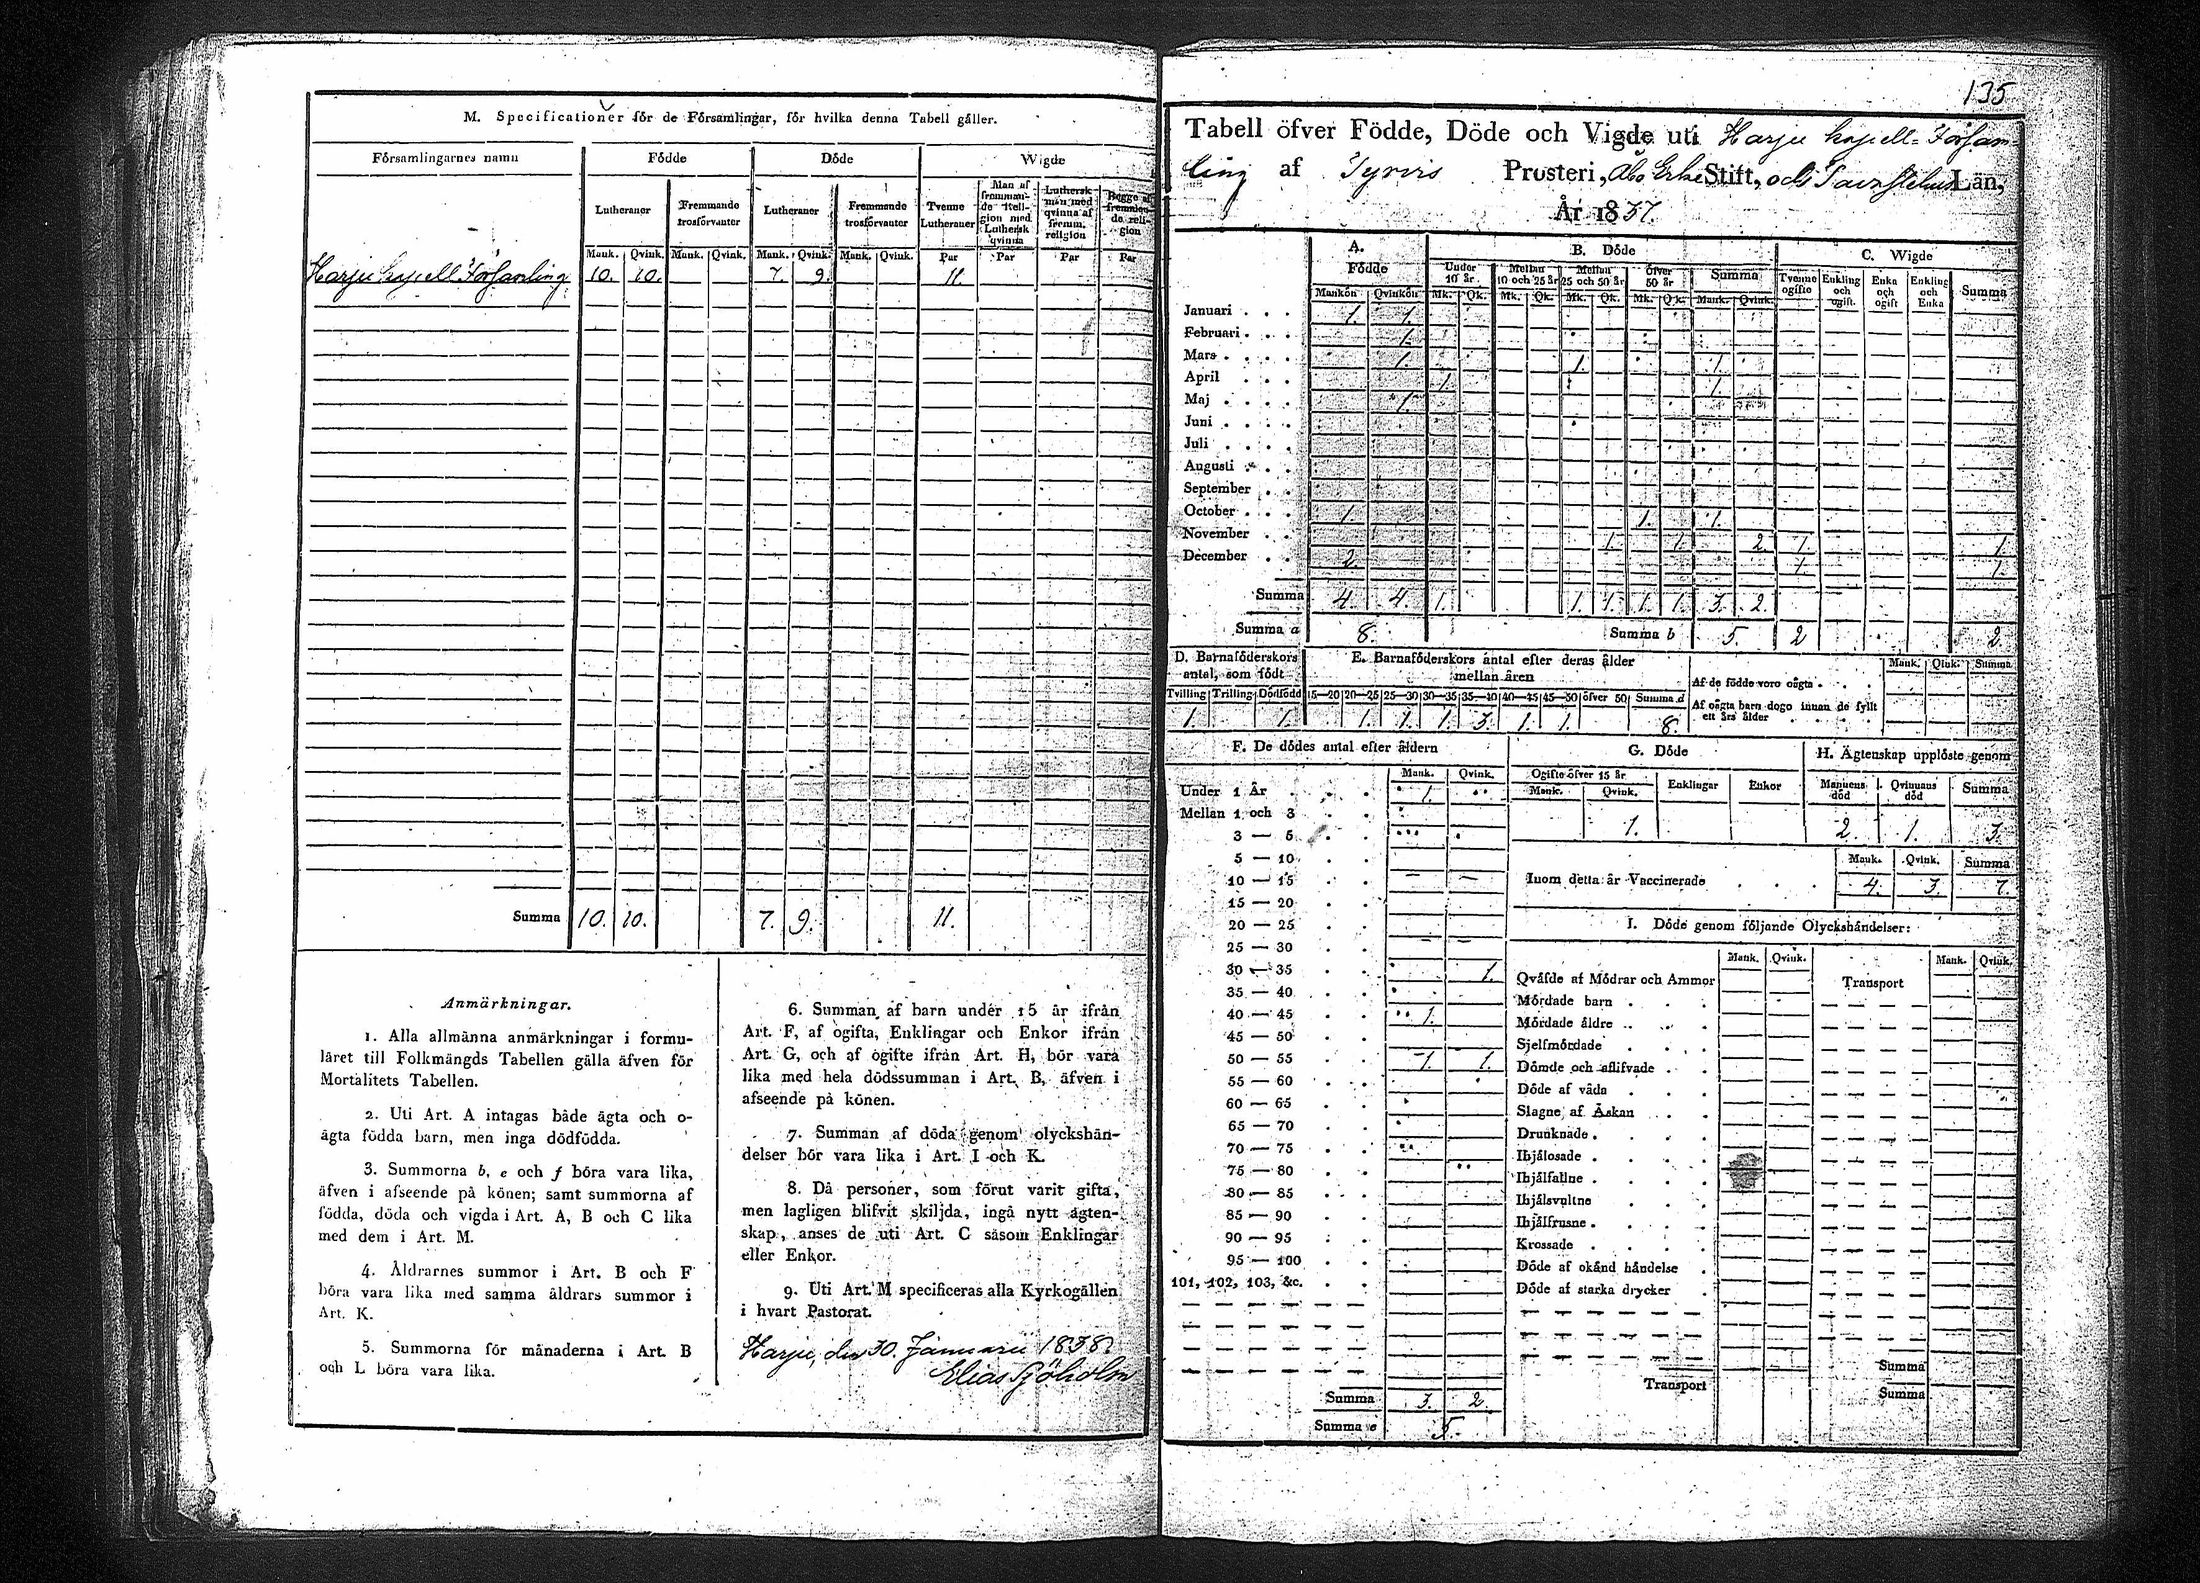 M. Specificationer för de Församlingar, för hvilka denna Tabell gäller.
Församlingarnes namn
Födde
Döde
Wigde
Lutheraner
Fremmande trosförvanter
Lutheraner
Fremmande trosförvanter
Tvenne Lutheraner
Man af fremmande Religion med Luthersk qvinna
Luthersk man med qvinna af fremm. religion
Begge af fremmande religion
Mank. Qvink. Mank. Qvink. Mank. Qvink. Mank. Qvink. Par Par Par Par
Harju kapell Församling 10. 10. 7. 9. 11.
Summa 10. 10. 7. 9. 11.
Anmärkningar.
1. Alla allmänna anmärkningar i formu-
läret till Folkmängds Tabellen gälla äfven för
Mortalitets Tabellen.
2. Uti Art. A intagas både ägta och o-
ägta födda barn, men inga dödfödda.
3. Summorna b, e och f böra vara lika,
äfven i afseende på könen; samt summorna af
födda, döda och vigda i Art. A, B och C lika
med dem i Art. M.
4. Åldrarnes summor i Art. B och F
böra vara lika med samma åldrars summor i
Art. K.
5. Summorna för månaderna i Art. B
och L böra vara lika.
6. Summan af barn under 15 år ifrån
Art. F, af ogifta, Enklingar och Enkor ifrån
Art. G, och af ogifte ifrån Art. H, bör vara
lika med hela dödssumman i Art. B, äfven i
afseende på könen.
7. Summan af döda genom olyckshän-
delser bör vara lika i Art. I och K.
8. Då personer, som förut varit gifta,
men lagligen blifvit skiljda, ingå nytt ägten-
skap, anses de uti Art. C såsom Enklingar
eller Enkor.
9. Uti Art. M specificeras alla Kyrkogällen
i hvart Pastorat.
Harju, den 30. Januarii 1838
Elias Sjöholm
135
Tabell öfver Födde, Döde och Vigde uti Harju kapell-Försam-
ling af Tyrvis Prosteri, Åbo Erke Stift, och Tavastehus Län,
År 1837.
A. Födde
B. Döde
C. Wigde
Under 10 år
Mellan 10 och 25 år
Mellan 25 och 50 år
Öfver 50 år
Summa
Tvenne ogifte
Enkling och ogift.
Enka och ogift
Enkling och Enka
Summa
Mankön Qvinkön Mk. Qk. Mk. Qk. Mk. Qk. Mk. Qk. Mank. Qvink.
Januari 1. 1.
Februari 1.
Mars 1. 1. 1.
April 1. 1.
Maj 1.
Juni
Juli
Augusti
September
October 1. 1. 1.
November 1. 1. 2. 1. 1.
December 2. 1. 1.
Summa 4. 4. 1. 1. 1. 1. 1. 3. 2.
Summa a 8. Summa b 5. 2 2
D. Barnaföderskors antal, som födt
E. Barnaföderskors antal efter deras ålder mellan åren
Mank. Qink. Summa
Tvilling Trilling Dödfödd 15—20 20—25 25—30 30—35 35—40 40—45 45—50 öfver 50 Summa d
1. 1. 1. 1. 1. 3. 1. 1. 8.
Af de födde voro oägta
Af oägta barn dogo innan de fyllt
ett års ålder
F. De dödes antal efter åldern
Mank. Qvink.
Under 1 År 1.
Mellan 1 och 3
3 — 5
5 — 10
10 — 15
15 — 20
20 — 25
25 — 30
30 — 35 1.
35 — 40
40 — 45 1.
45 — 50
50 — 55 1. 1.
55 — 60
60 — 65
65 — 70
70 — 75
75 — 80
80 — 85
85 — 90
90 — 95
95 — 100
101, 102, 103, &c.
Summa 3. 2.
Summa e 5.
G. Döde
Ogifte öfver 15 år
Mank. Qvink.
Enklingar
Enkor
1.
H. Ägtenskap upplöste genom
Mannens död
Qvinnans död
Summa
2. 1. 3.
Mank. Qvink. Summa
Inom detta år Vaccinerade 4. 3. 7.
I. Döde genom följande Olyckshändelser:
Mank. Qvink. Mank. Qvink.
Qväfde af Mödrar och Ammor
Transport
Mördade barn
Mördade äldre
Sjelfmördade
Dömde och aflifvade
Döde af våda
Slagne af Åskan
Drunknade
Ihjälosade
Ihjälfallne
Ihjälsvultne
Ihjälfrusne
Krossade
Döde af okänd händelse
Döde af starka drycker
Transport
Summa
Summa